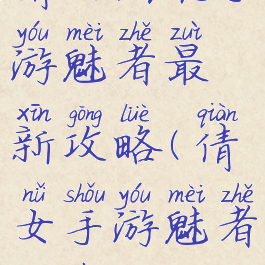 yóu mèi zhě zuì
游魅者最
xīn gōng lüè qiàn
新攻略(倩
nǚ shǒu yóu mèi zhě
女手游魅者